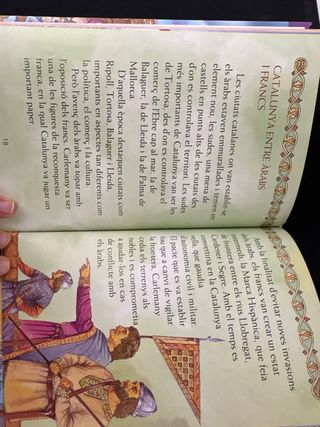 CATALUNYA ENTRE ÀRABS
I FRANCS
Les ciutats catalanes on van establir-se
els àrabs estaven emmurallades i tenien un
element nou. Les sudes: una mena de
castells en punts alts de les ciutats des
d'on es controlava el territori. Les sudes
més importants de Catalunya van ser les
de Tortosa, des d'on es controlava el
comerç de l'Ebre cap al mar, la de
Balaguer, la de Lleida i la de Palma de
Mallorca.
D'aquella època destaquen ciutats com
Ripoll, Tortosa, Balaguer i Lleida,
importants en aspectes tan diferents com
la política, el comerç i la cultura.
Però l'avenç dels àrabs va topar amb
l'oposició dels francs. Carlemany va ser
una de les figures de la reconquesta
franca, en la qual Catalunya va jugar un
important paper.
18
Amb la finalitat d'evitar noves invasions
àrabs, els francs van crear un estat
amb la Marca Hispànica, que feia
de frontera entre els
Cardener i Segre. Amb el temps es
convertiria en la Catalunya
vella, que gaudia
autonomia civil i militar.
El pacte que es va establir
fou que a canvi de vigilar
la frontera, Carlemany
cedia els terrenys als
nobles i es comprometia
a ajudar-los en cas
de conflicte amb
els àrabs.